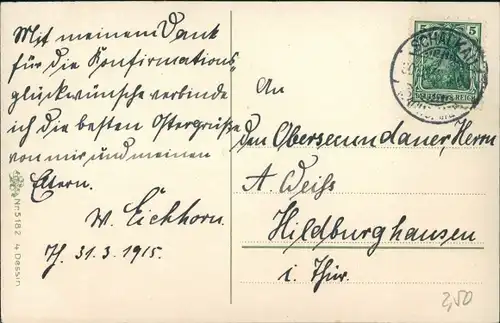 Mit meinem Dank
für die Konfirmations-
glückwünsche verbinde
ich die besten Ostergrüße
von mir und meinen
Eltern.
W. Eichhorn.
31.3.1915.
Nr. 5182 4 Dessin
5 5
SCHALKAU
An
den Obersecundaner, Herrn
A. Weiß
Hildburghausen
i. Thür.
2,50